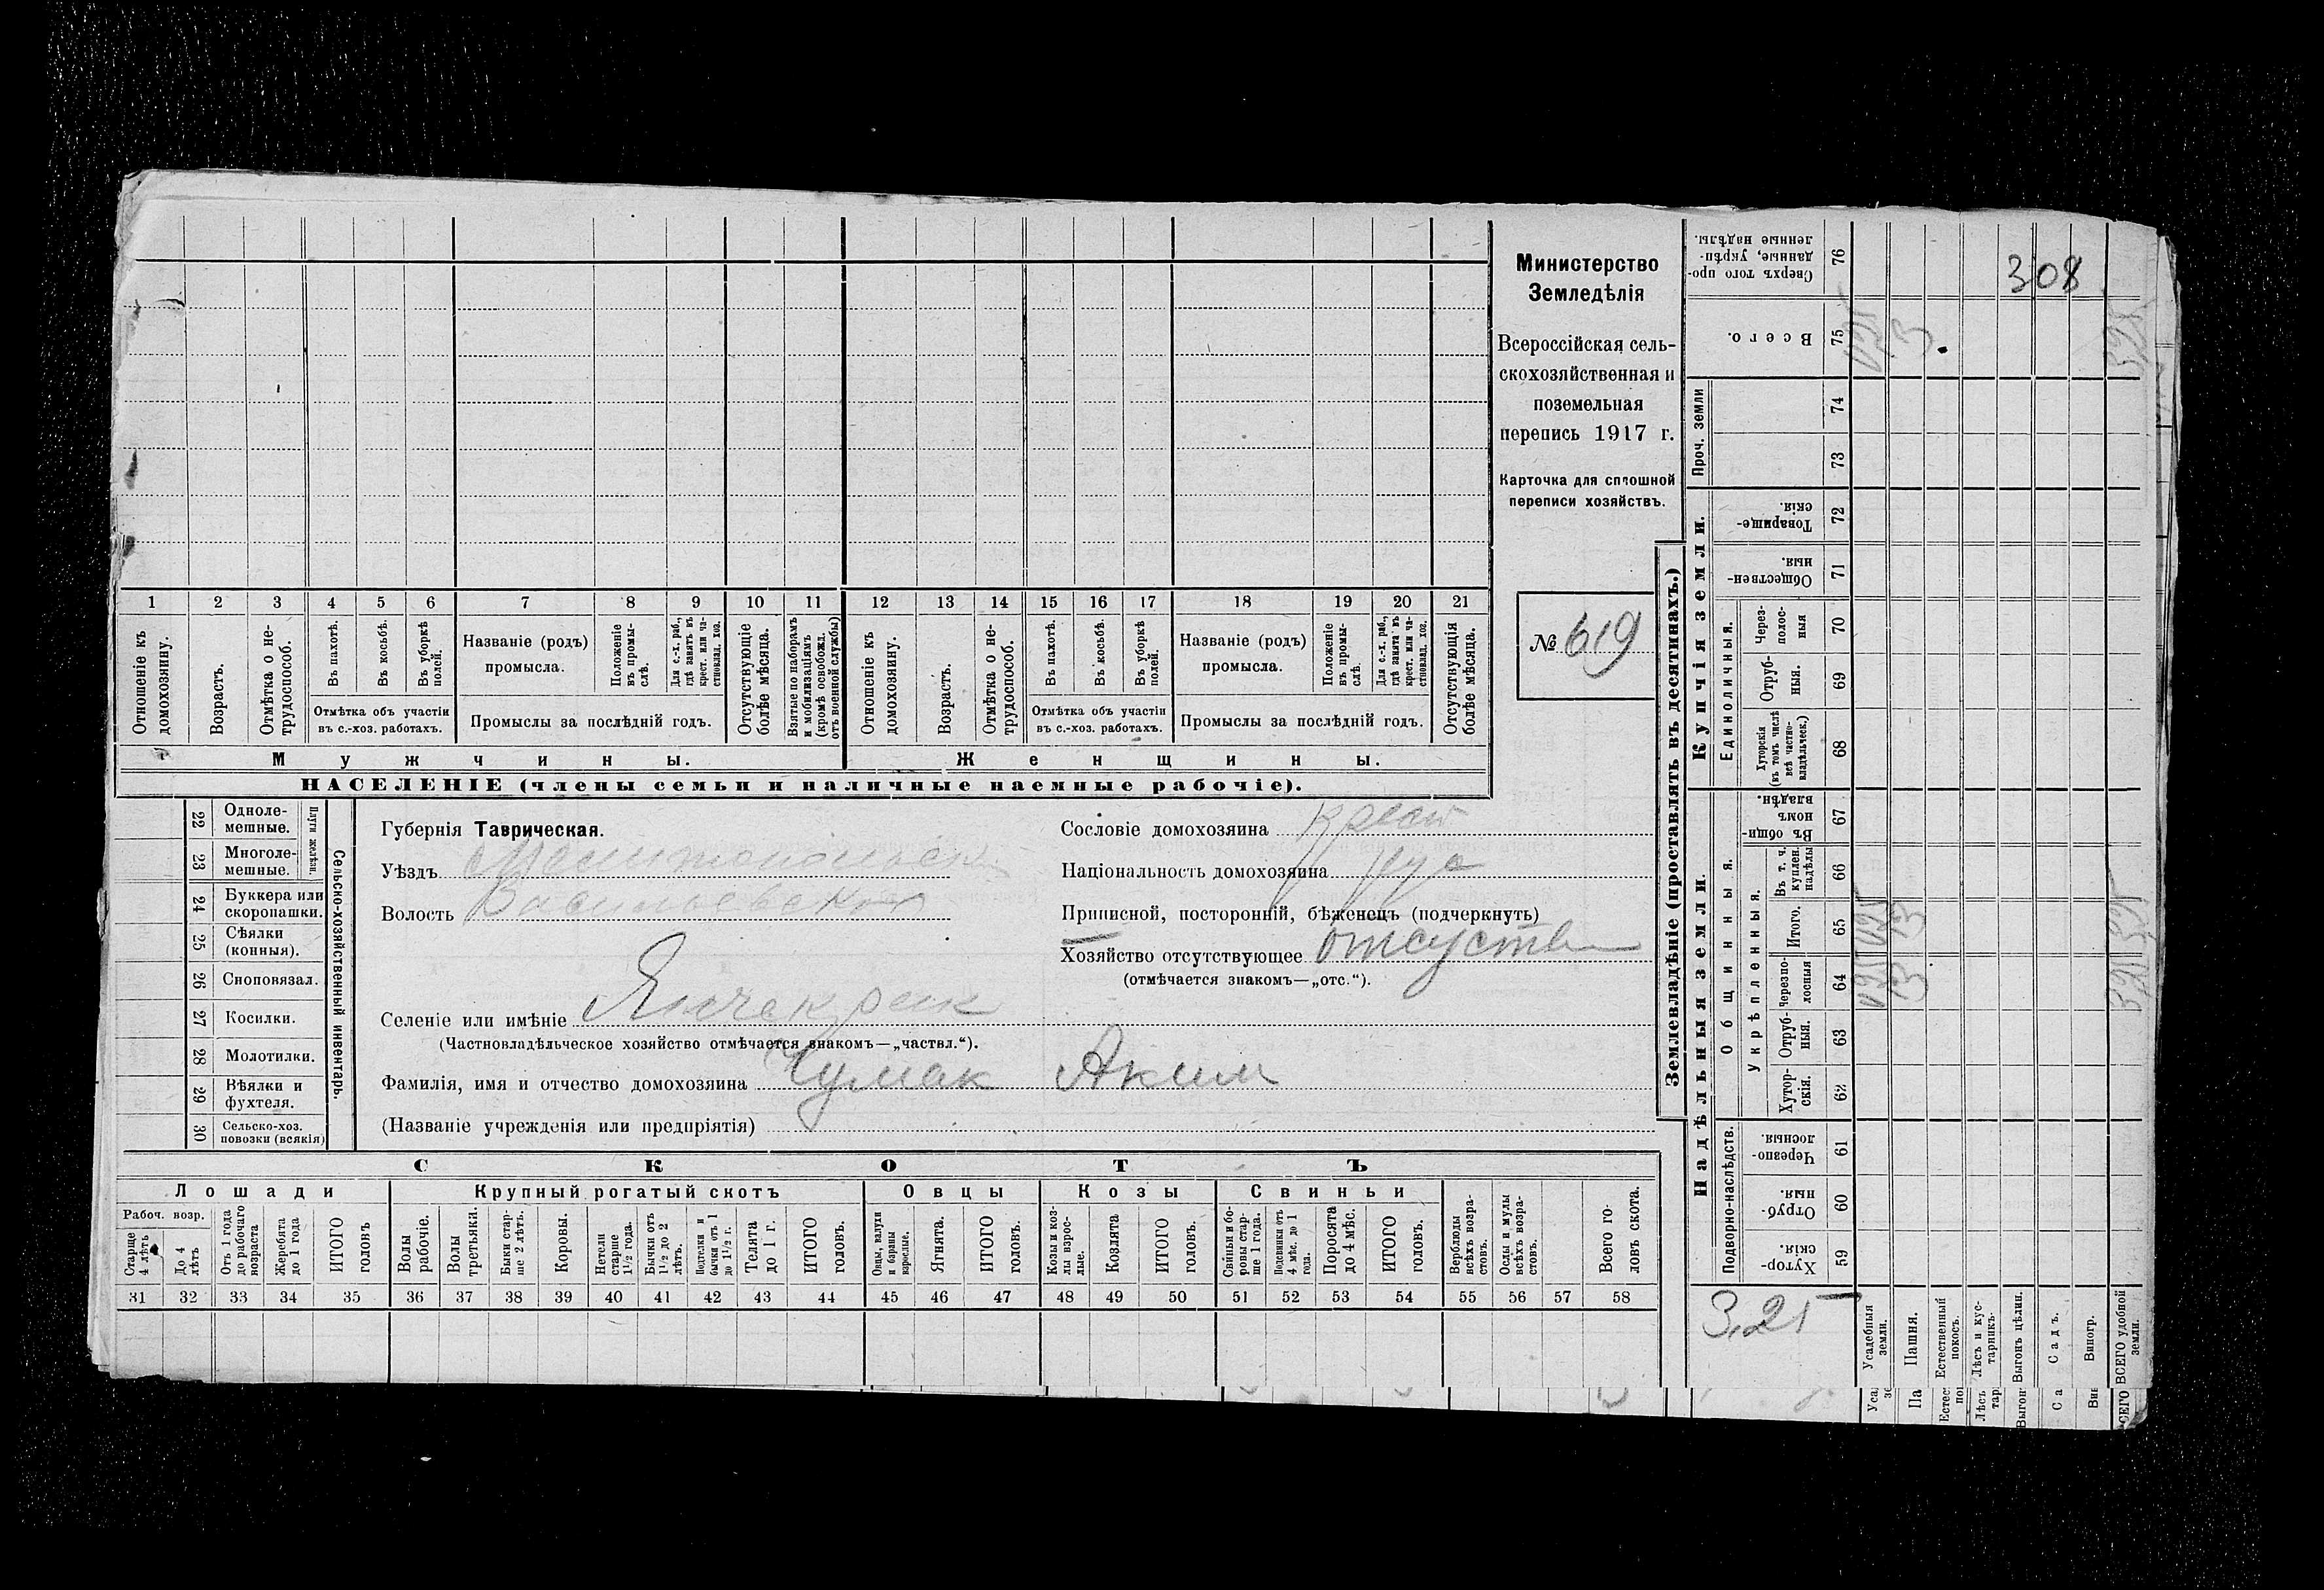 Министерство
Земледѣлія
Всероссійская сель-
скохозяйственная и
поземельная
перепись 1917 г.
Карточка для сплошной
переписи хозяйствъ.
№ 619
308
1 2 3 4 5 6 7 8 9 10 11 12 13 14 15 16 17 18 19 20 21
Отношеніе къ домохозяину.
Возрастъ.
Отмѣтка о не-трудоспособ.
Въ пахотѣ.
Въ косьбѣ.
Въ уборкѣ полей.
Отмѣтка объ участіи
въ с.-хоз. работахъ.
Названіе (родъ)
промысла.
Положеніе въ промы-слѣ.
Для с.-х. раб., гдѣ занятъ въ крест. или ча-стновлад. хоз.
Промыслы за послѣдній годъ.
Отсутствующіе болѣе мѣсяца.
Взятые по наборамъ и мобилизаціямъ (кромѣ освобожл. отъ военной службы)
Отношеніе къ домохозяину.
Возрастъ.
Отмѣтка о не-трудоспособ.
Въ пахотѣ.
Въ косьбѣ.
Въ уборкѣ полей.
Отмѣтка объ участіи
въ с.-хоз. работахъ.
Названіе (родъ)
промысла.
Положеніе въ промы-слѣ.
Для с.-х. раб., гдѣ занята въ крест. или ча-стновлад. хоз.
Промыслы за послѣдній годъ.
Отсутствующія болѣе мѣсяца.
Мужчины.
Женщины.
НАСЕЛЕНІЕ (члены семьи и наличные наемные рабочіе).
22 Одноле-мешные.
23 Многоле-мешные.
Плуги желѣзн.
24 Буккера или скоропашки.
25 Сѣялки (конныя).
26 Сноповязал.
27 Косилки.
28 Молотилки.
29 Вѣялки и фухтеля.
30 Сельско-хоз. повозки (всякія)
Сельско-хозяйственный инвентарь.
Губернія Таврическая.
Уѣздъ Мелитопольск
Волость Васильевская
Сословіе домохозяина крест
Національность домохозяина рус
Приписной, посторонній, бѣженецъ (подчеркнуть)
Хозяйство отсутствующее отсуств
(отмѣчается знакомъ—„отс.“).
Селеніе или имѣніе Янчекрак
(Частновладѣльческое хозяйство отмѣчается знакомъ—„частвл.“).
Фамилія, имя и отчество домохозяина Чумак Аким
(Названіе учрежденія или предпріятія)
СКОТЪ
Лошади
Крупный рогатый скотъ
Овцы
Козы
Свиньи
Рабоч. возр.
Старше 4 лѣтъ
До 4 лѣтъ
Отъ 1 года до рабочаго возраста
Жеребята до 1 года
ИТОГО головъ
Волы рабочіе.
Волы третьяка.
Быки стар-ше 2 лѣтъ.
Коровы.
Нетели старше 1½ года.
Бычки отъ 1½ до 2 лѣтъ.
Подтелки и бычки отъ 1 до 1½ г.
Телята до 1 г.
ИТОГО головъ.
Овцы, валухи и бараны взрослые.
Ягнята.
ИТОГО головъ.
Козы и коз-лы взрос-лые.
Козлята
ИТОГО головъ.
Свиньи и бо-ровы стар-ше 1 года.
Подсвинки отъ 4 мѣс. до 1 года.
Поросята до 4 мѣс.
ИТОГО головъ.
Верблюды всѣхъ возра-стовъ.
Ослы и мулы всѣхъ возра-стовъ.
Всего го-ловъ скота.
31 32 33 34 35 36 37 38 39 40 41 42 43 44 45 46 47 48 49 50 51 52 53 54 55 56 57 58
Землевладѣніе (проставлять въ десятинахъ.)
Надѣльныя земли.
Купчія земли.
Проч. земли
Сверхъ того про-данные, укрѣп-ленные надѣлы. 76
Всего. 75
74
73
Товарище-скія. 72
Обществен-ныя. 71
Единоличныя.
Через-полос-ныя 70
Отруб-ныя. 69
Хуторскія (въ томъ числѣ всѣ частно-владѣльческ.) 68
Общинныя.
Въ общи-номъ владѣн. 67
Укрѣпленныя.
Въ т. ч. куплен. надѣлы 66
Итого. 65
Черезпо-лосныя 64
Отруб-ныя. 63
Хутор-скія. 62
Подворно-наслѣдств.
Черезпо-лосныя 61
Отруб-ныя. 60
Хутор-скія. 59
3,25
Усадебныя земли.
Пашня.
Естественный покосъ.
Лѣсъ и кус-тарникъ.
Выгонъ цѣлин.
Садъ.
Виногр.
ВСЕГО удобной земли.
025 3 325
025 3
025 3 325